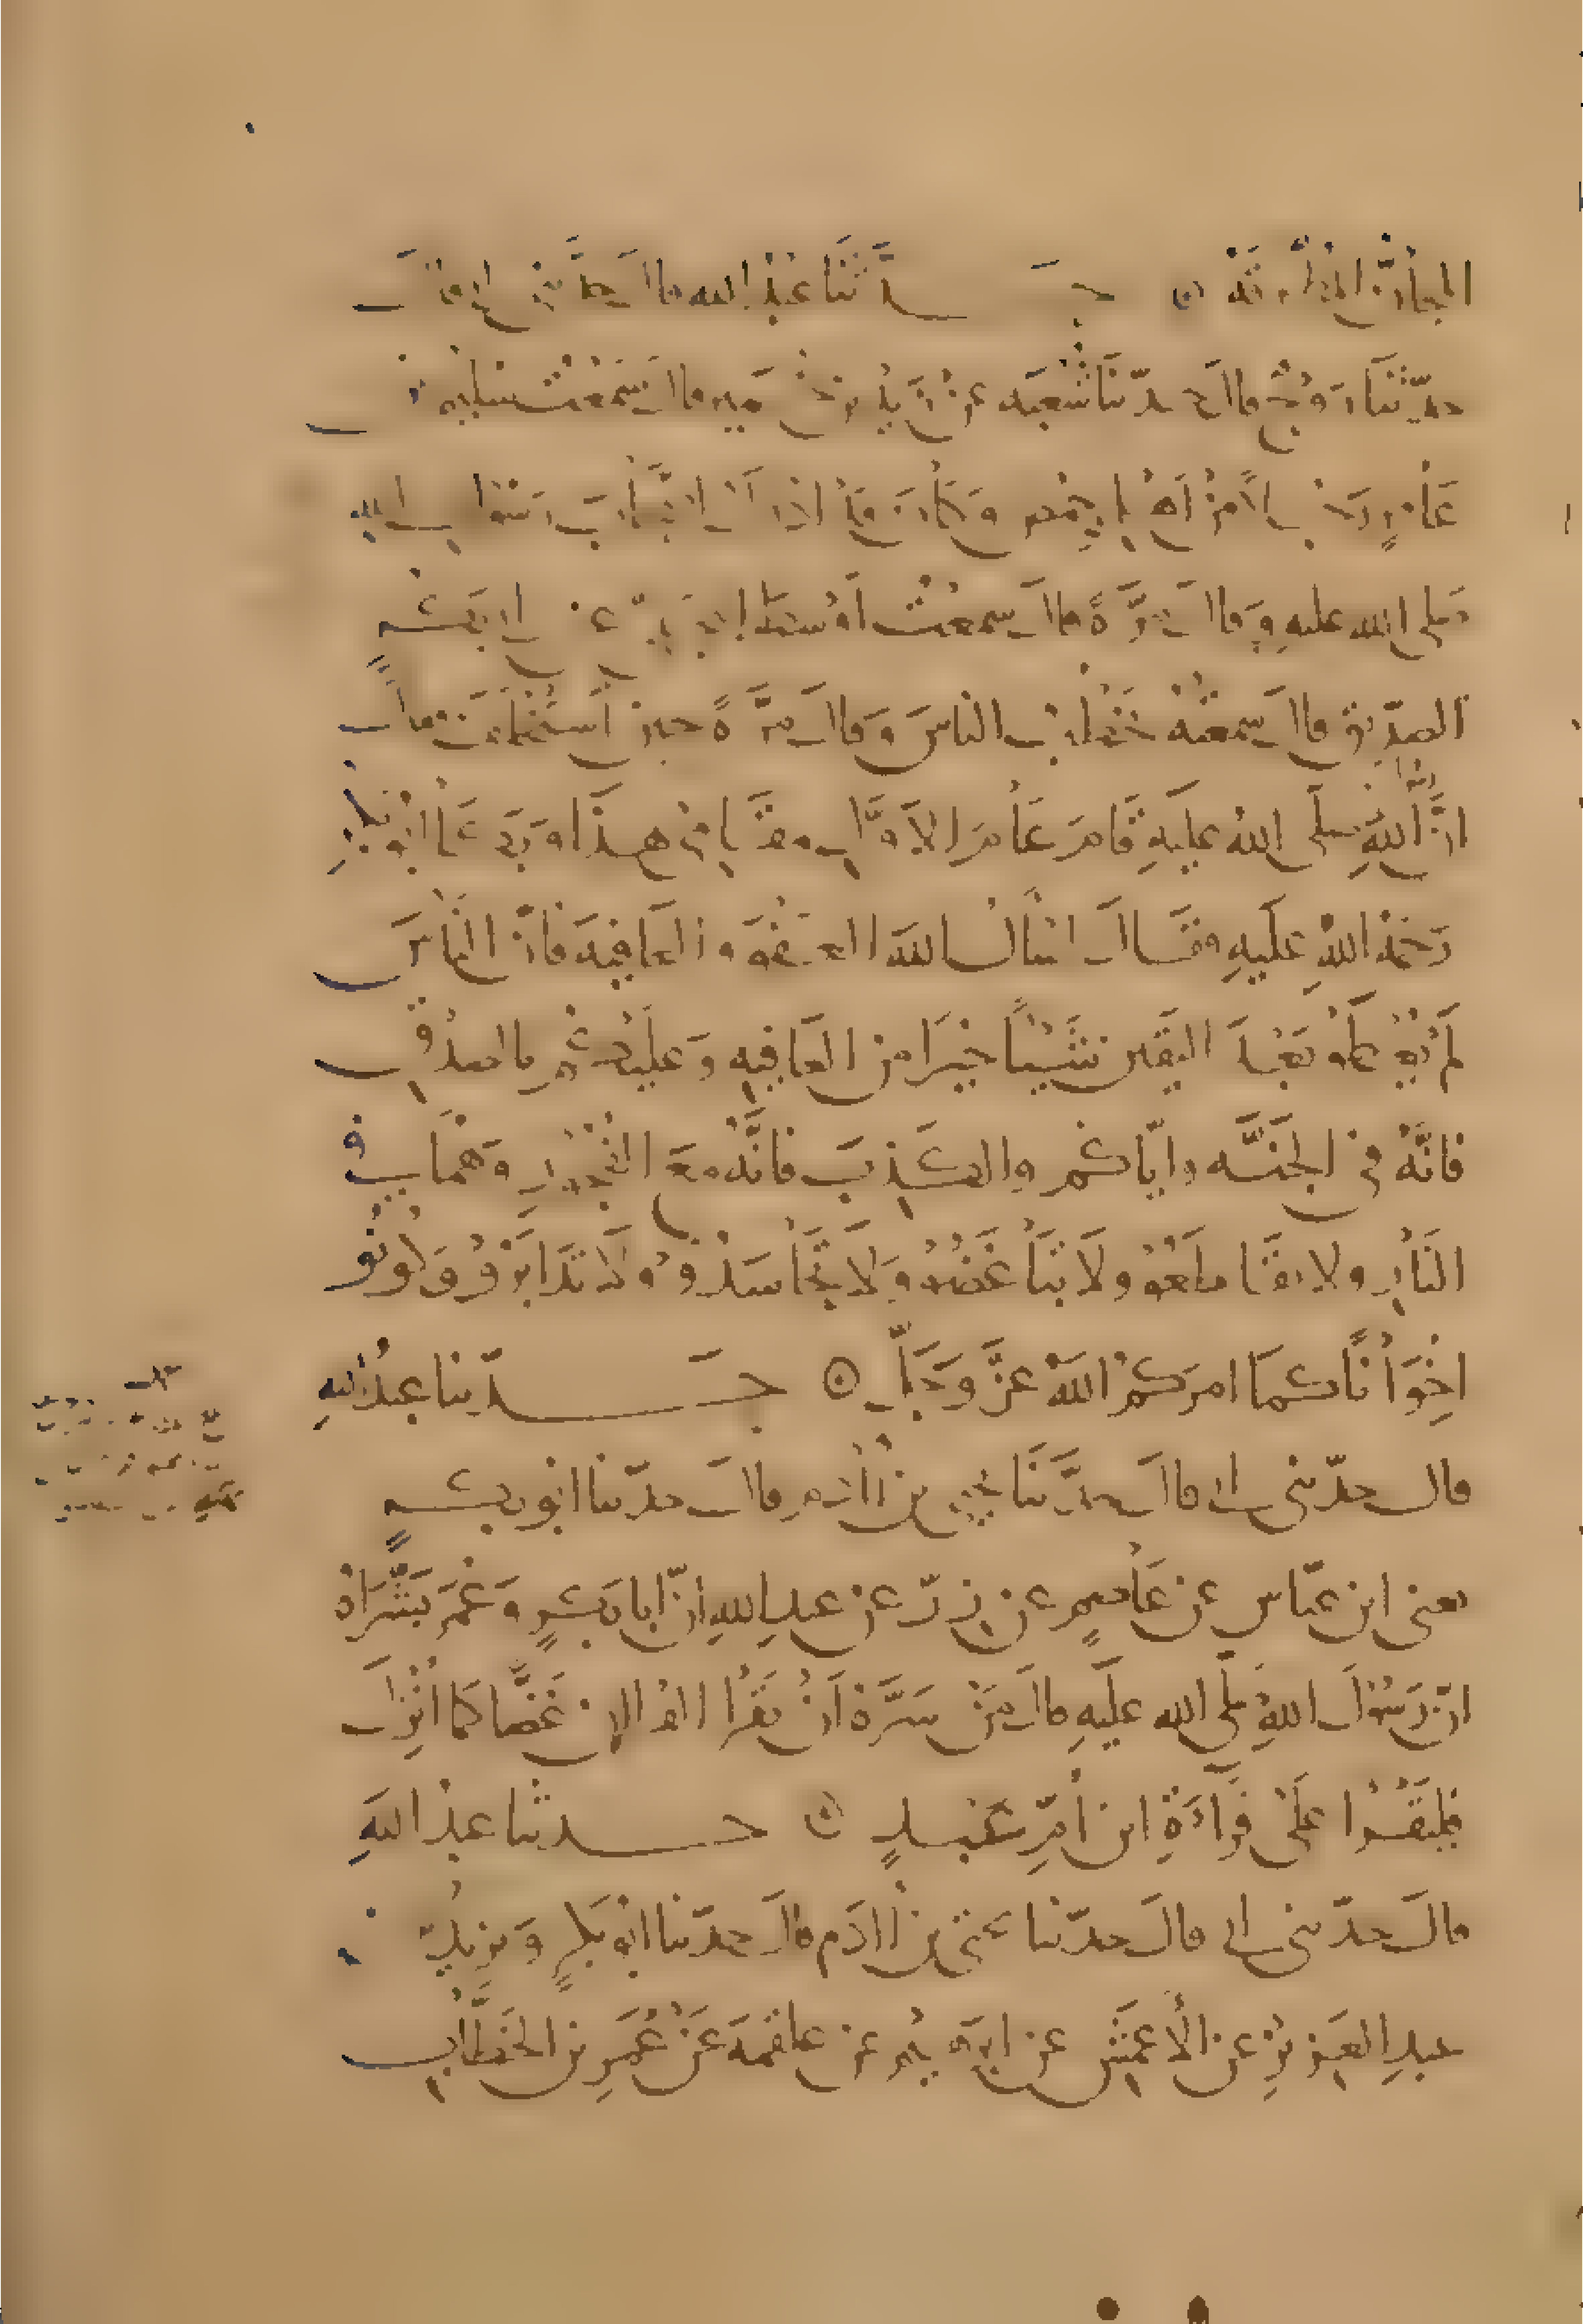 المجانّ المطرقة ۞ حدَّثَنَا عَبْدُ الله قال حدَّثني ابي قال
حدّثنَا رَوْحٌ قال حدّثنَا شُعْبَه عنْ يَزيدَ بن خُمَيرٍ قال سَمِعْتُ سُليم بن
عَامِرٍ رَجُلاً مِنْ اَهْلِ حِمْص وَكَانَ قَدْ ادْرَكَ اصْحَابَ رَسُول الله
صلى الله عليهِ وَقال مَرَّةً قال سمعْتُ اَوْسَطَ البَجَلِيّ عن ابي بَكْرٍ
الصدّيق قال سمعتُهُ يَخْطُبُ الناسَ وَقال مَرَّةً حين اسْتُخْلِفَ فقال
انَّ رسُولَ اللهِ صلَّى اللهُ عليهِ قَامَ عَامَ الاَوَّلِ مقَامِي هذَا وَبَكَى ابُو بَكْرٍ
رَحْمَةُ اللهِ عَلَيهِ فقَالَ اسْأَلُ اللهَ العَفْوَ والعَافِيَةَ فانّ الناسَ
لَمْ يُعْطَوْ بَعْدَ اليَقين شَيْئًا خيْرًا من العَافيهِ وَعليْكُمْ بالصدْقِ
فانَّهُ فى الجَنَّه وايّاكُم والكَذِبَ فانَّهُ معَ الفُجُورِ وَهُمَا فى
النَارِ ولا تقَاطَعُوْ ولَا تبَاغَضُوْ وَلَا تحَاسَدُوْ وَلَا تَدَابَرُوْ وَكُونُو
اِخْوَانًا كمَا امرَكمُ اللهُ عزَّ وَجَلَّ ۞ حَدّثنا عبدُ اللهِ
قال حدّثنى ابى قال حدَّثنَا يحيى بن اادَم قال حدّثنا ابو بكرٍ
يعنى ابن عيّاش عن عَاصِمٍ عن زِرّ عن عبدِ اللهِ انّ ابا بَكرٍ وَعُمَرَ بَشَّرَاهُ
انّ رَسُوْلَ اللهِ صلى الله علَيهِ قالَ مَنْ سَرَّهُ اَنْ يَقْرَأ القراان غَضًّا كمَا اُنْزِلَ
فليَقْرَأ عَلَى قِرَاءَةِ ابن اُمِّ عَبْدٍ ۞ حدثنا عبدُ اللهِ
قالَ حدّثنى ابى قالَ حدّثنا يحيى بن اادَم قالَ حدّثنا ابُو بَكرٍ وَيزيدُ بن
عبدِ العَزيْزِ عن الأعمَش عن ابرَهيْم عن علقمَةَ عَنْ عُمَرِ بن الخَطَّابِ